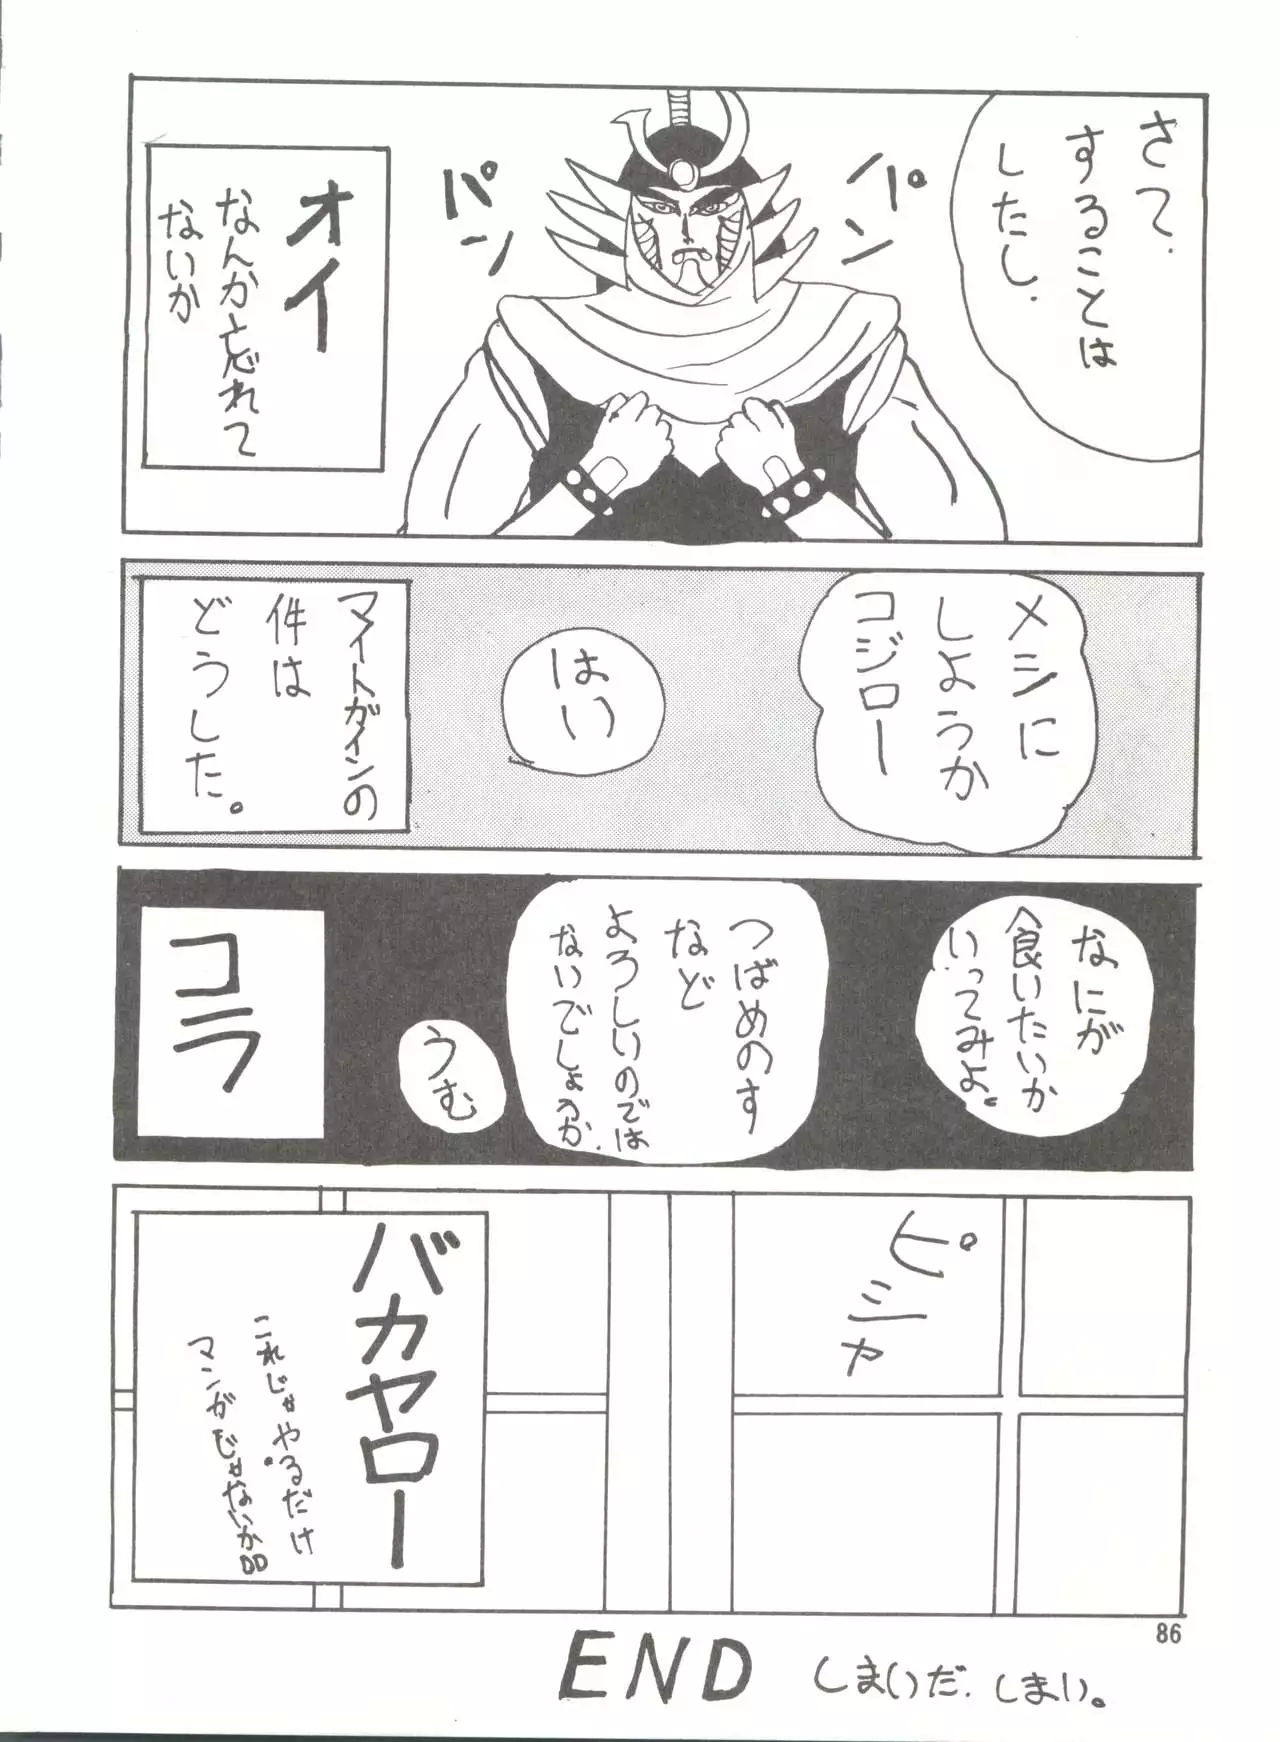 さて、
することは
したし、
パン
パン
オイ
なんか忘れて
ないか
メシに
しようか
コジロー
はい
マイトガインの
件は
どうした。
なにが
食いたいか
いってみよ。
つばめのす
など
よろしいのでは
ないでしょうか、
うむ
コラ
ピシャ
バカヤロー
これじゃやるだけ
マンガじゃないか
END
しまいだ、しまい。
86